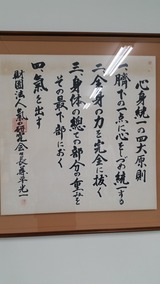 心身統一の四大原則
一、臍下の一点に心をしづめ統一する
二、全身の力を完全に抜く
三、身体の総ての部分の重みを
その最下部におく
四、氣を出す
財團法人氣の研究会々長藤平光一